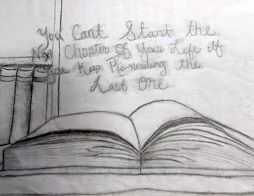 You Cant Start the
Next Chapter Of Your Life if
You Keep Re-reading the
Last One